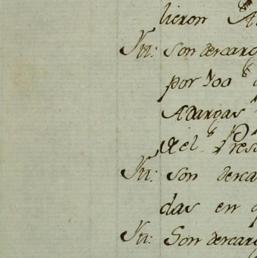 lieron
Ytt: Son descarg
por 100
Adargas
del Pres
Ytt: Son desca
das en
Ytt: Son descarg